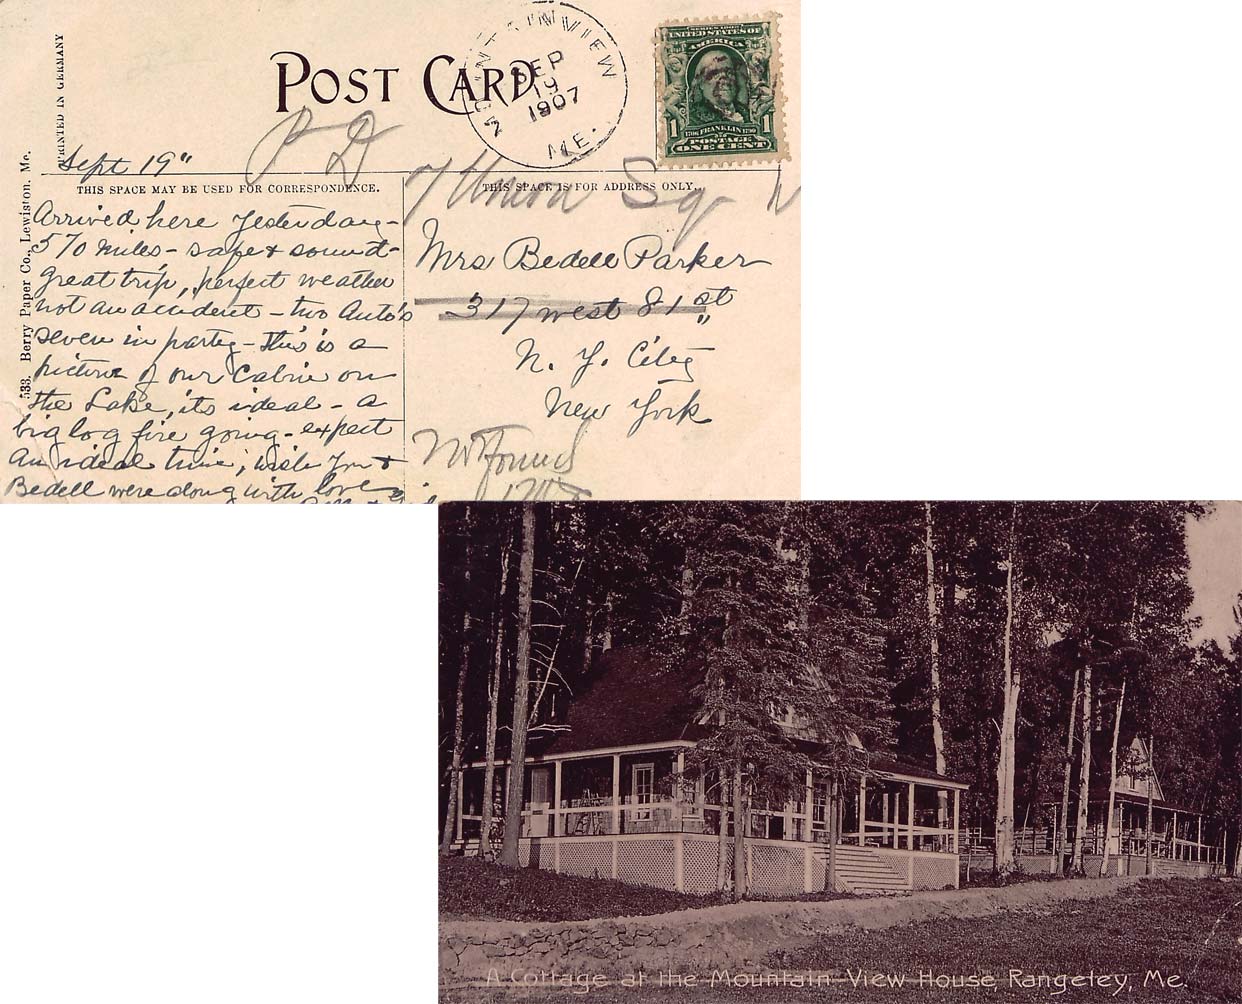 PRINTED IN GERMANY
533. Berry Paper Co., Lewiston. Me.
POST CARD
MOUNTAINVIEW
SEP
19
2 1907
ME.
SERIES 1902
UNITED STATES OF
AMERICA
1 1706 FRANKLIN 1790 1
POSTAGE
ONE CENT
P D
Sept 19"
THIS SPACE MAY BE USED FOR CORRESPONDENCE.
Arrived here yesterday -
570 miles - safe & sound -
great trip, perfect weather
not an accident - two Auto's
seven in party - this is a
picture of our Cabin on
the Lake, its ideal - a
big log fire going - expect
an ideal time, wish you &
Bedell were along with love
THIS SPACE IS FOR ADDRESS ONLY
7 Union Sq W
Mrs Bedell Parker
317 west 81st
N. Y. City
New York
Not Found
A Cottage at the Mountain View House, Rangeley, Me.